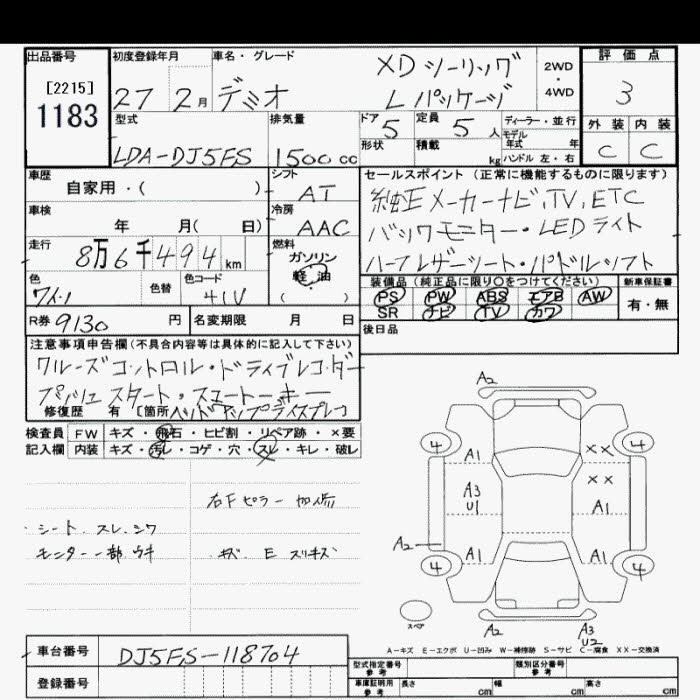 出品番号 初度登録年月 車名・グレード 評価点
[2215] 1183
27 2月 デミオ XDツーリング Lパッケージ 2WD・4WD 3
型式 排気量 ドア 5 定員 5人 ディーラー・並行 外装 内装
LDA-DJ5FS 1500cc 形状 積載 kg モデル年式 年 ハンドル 左・右 C C
車歴 シフト セールスポイント(正常に機能するものに限ります)
自家用・( ) AT 純正メーカーナビ、TV、ETC
車検 冷房 バックモニター・LEDライト
年 月( 日) AAC ハーフレザーシート・パドルシフト
走行 燃料
8万6千494km ガソリン 軽・油 ( )
色 色替 色コード 装備品(純正品に限り○をつけてください) 新車保証書
ワイン 41V PS PW ABS エアB AW 有・無
SR ナビ TV カワ
R券 9130円 名変期限 月 日 後日品
注意事項申告欄(不具合内容等は具体的に記入して下さい)
クルーズコントロール・ドライブレコーダー
プッシュスタート・スマートキー
修復歴 有 [箇所 ヘッドアップディスプレイ
検査員 FW キズ・飛石・ヒビ割・リペア跡・×要
記入欄 内装 キズ・汚レ・コゲ・穴・スレ・キレ・破レ
右Fピラー 加修
シート・スレ、シワ
モニター一部ウキ キズ E スリキズ
A2
4 4
A1 XX
XX
A3 U1 A1
A2
A1 A1
4 4
スペア
A2 A3 U2
A-キズ E-エクボ U-凹み W-補修跡 S-サビ C-腐食 XX-交換済
車台番号 DJ5FS-118704
登録番号
型式指定番号 参考 類別区分番号 参考
車庫証明用 参考 長さ cm 幅 cm 高さ cm